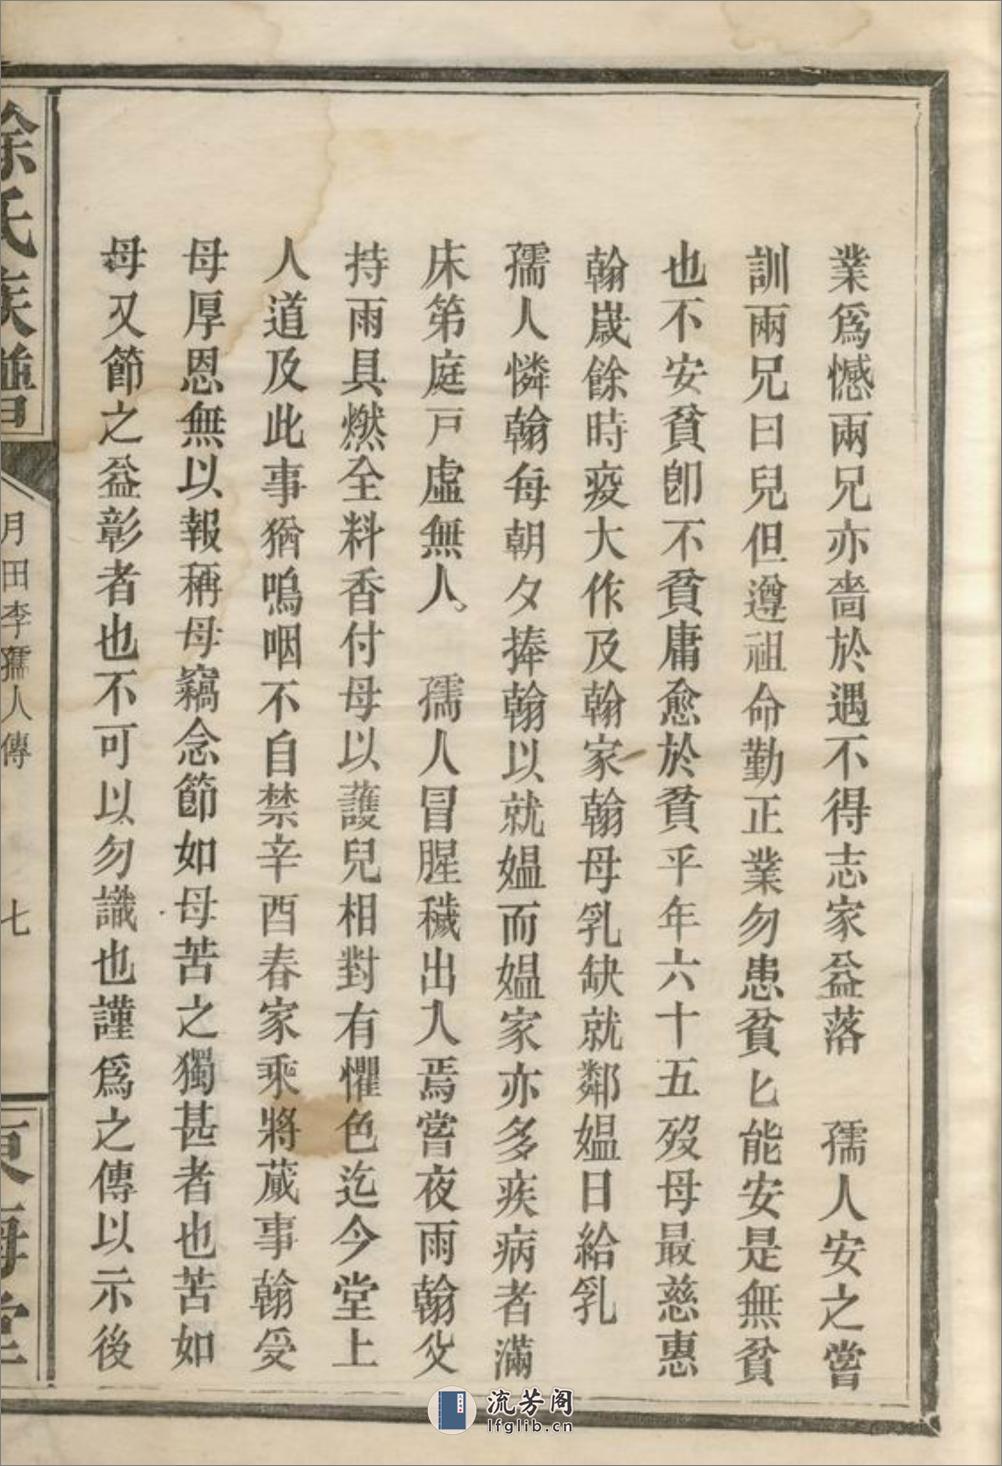 業爲憾兩兄亦嗇於遇不得志家益落　孺人安之嘗
訓兩兄曰兒但遵祖命勤正業勿患貧匕能安是無貧
也不安貧卽不貧庸愈於貧乎年六十五歿母最慈惠
翰歲餘時疫大作及翰家翰母乳缺就鄰媼日給乳
孺人憐翰每朝夕捧翰以就媼而媼家亦多疾病者滿
床第庭戸虛無人。　孺人冒腥穢出入焉嘗夜雨翰父
持雨具燃全料香付母以護兒相對有懼色迄今堂上
人道及此事猶嗚咽不自禁辛酉春家乘將蕆事翰受
母厚恩無以報稱母竊念節如母苦之獨甚者也苦如
母又節之益彰者也不可以勿識也謹爲之傳以示後
徐氏族譜
月田李孺人傳
七
東海堂
流芳阁
lfglib.cn